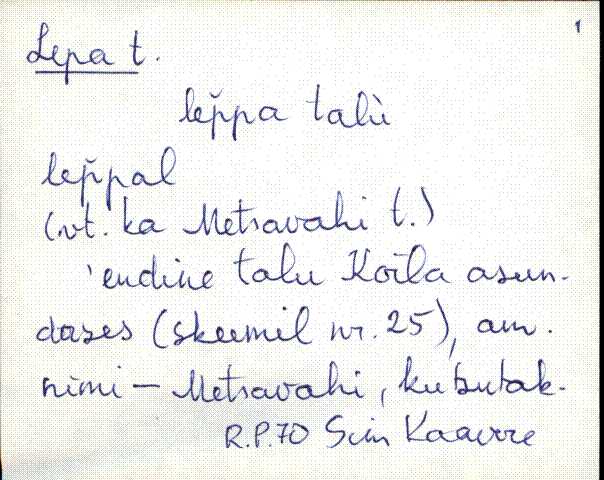 1
Lepa t.
lep̆pa talù
lep̆pal
(vt. ka Metsavahi t.)
'endine talu Koila asun-
dases (skeemil nr. 25), am.
nimi – Metsavahi, kutsutak-
R.P.70 Siim Kaavere